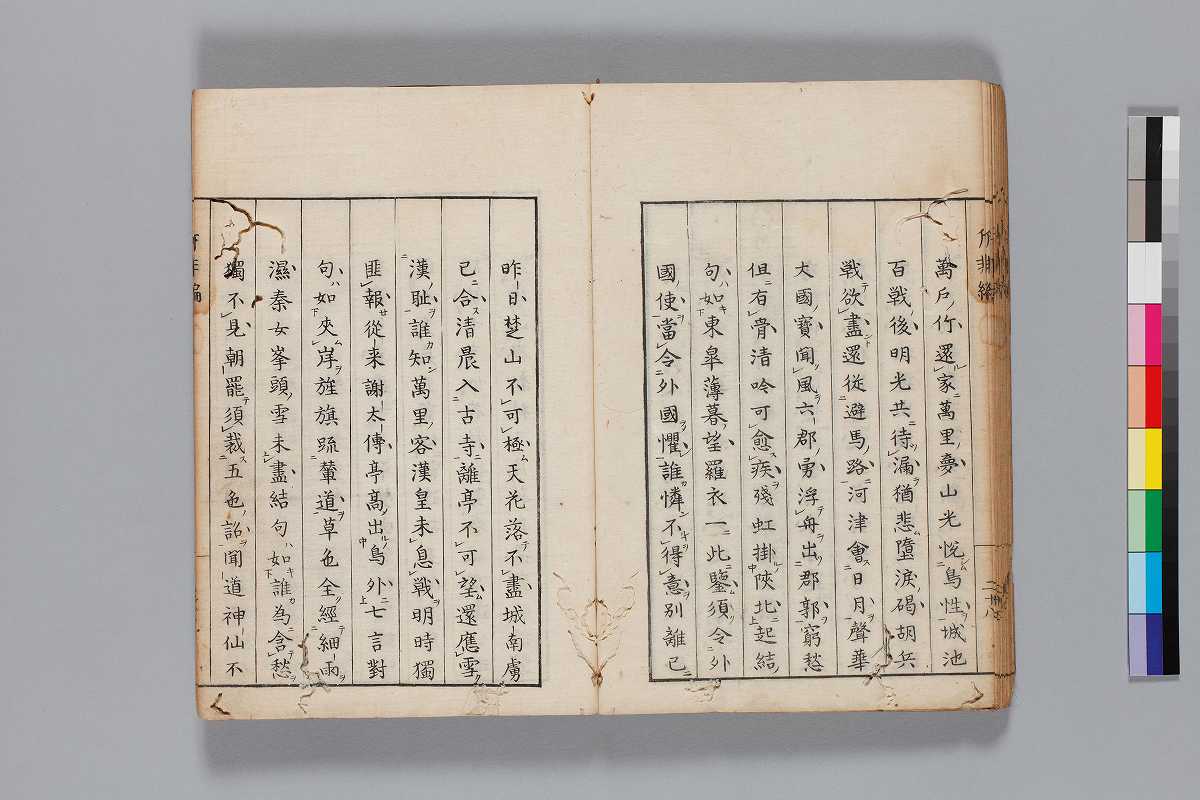 萬戶竹還家萬里夢山光悅鳥性城池
百戰後明光共待漏猶悲墮淚碣胡兵
戰欲盡還從避馬路河津會日月聲華
大國寶聞風六郡勇浮舟出郡郭窮愁
但有骨清吟可愈疾殘虹掛陝北起結
句如東皐薄暮望羅衣一此鑒須令外
國使當令外國懼誰憐不得意別離已
昨日楚山不可極天花落不盡城南虜
已合清晨入古寺離亭不可望還應雪
漢耻誰知萬里客漢皇未息戰明時獨
匪報從来謝太傅亭高出鳥外七言對
句如夾岸旌旗踈輦道草色全經細雨
濕秦女峯頭雪未盡結句如誰為含愁
獨不見朝罷須裁五色詔聞道神仙不